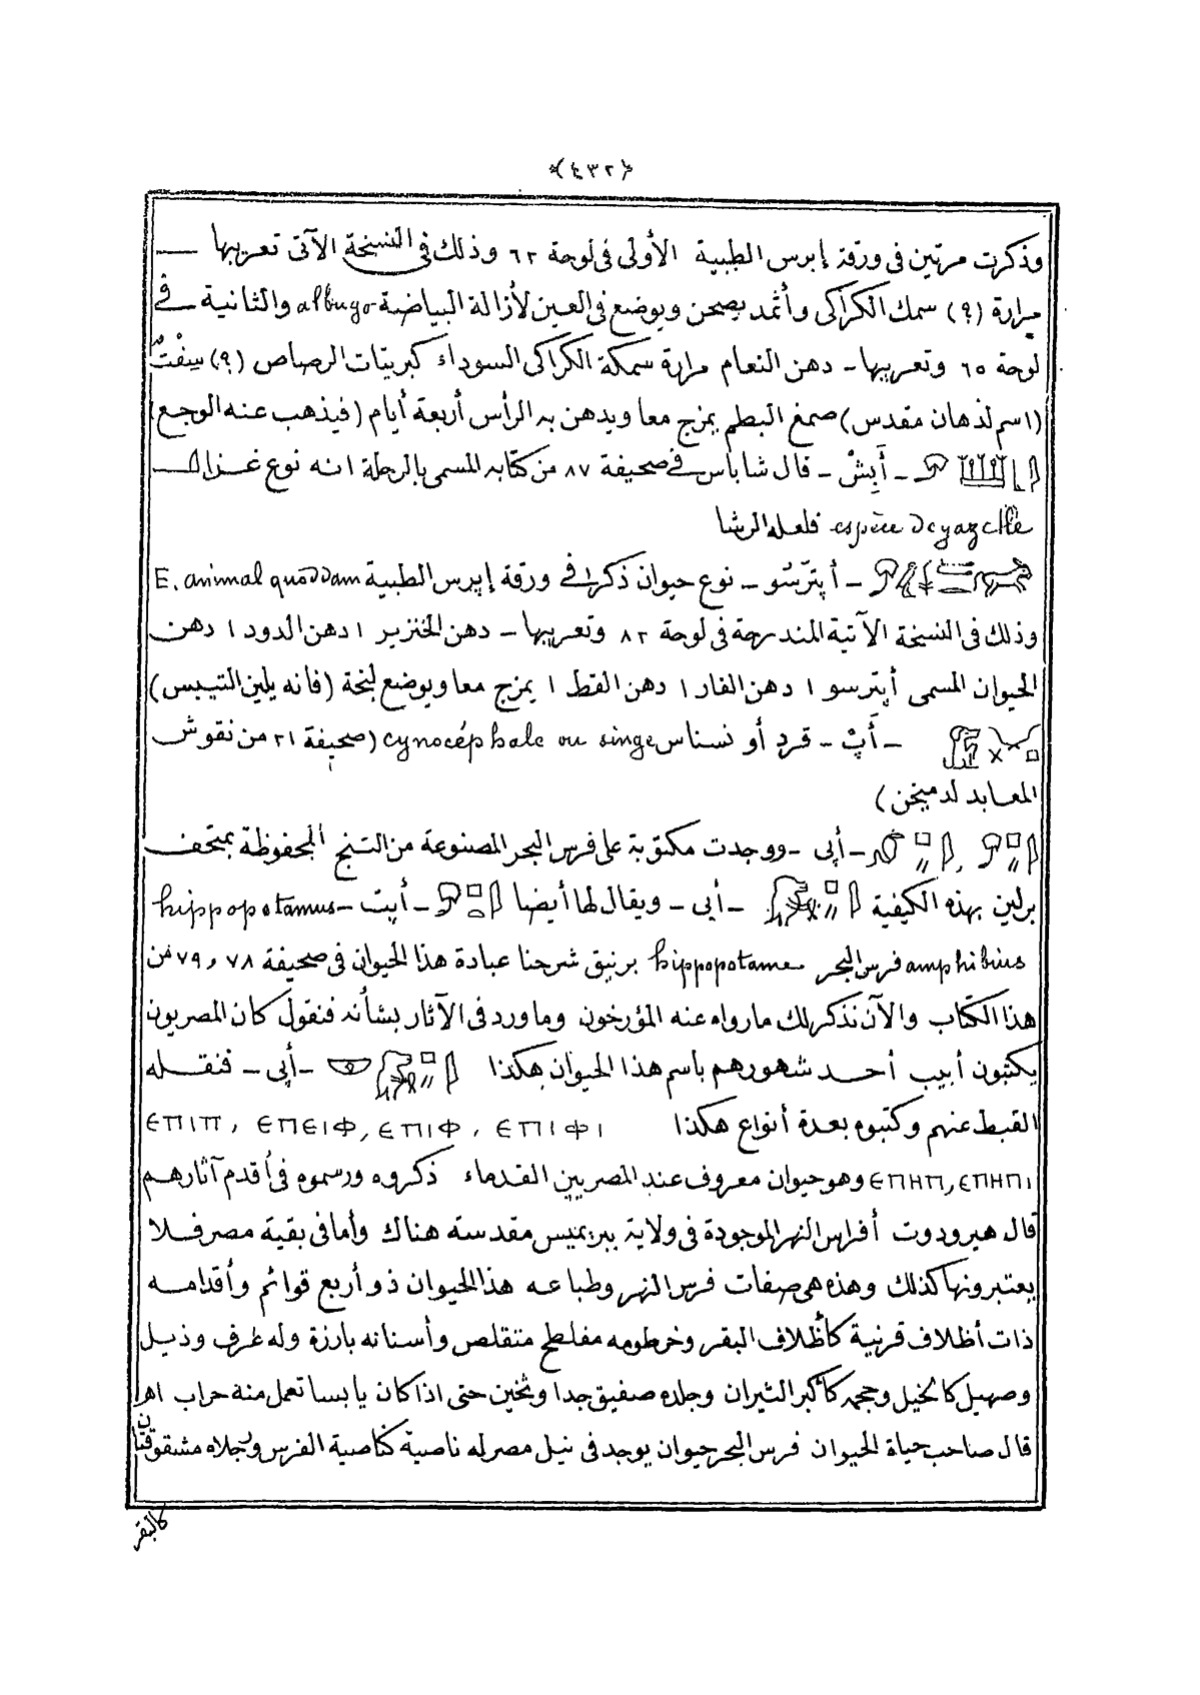 ﴿٤٣٢﴾
وذكرت مرتين فى ورقة إبرس الطبية الأولى فى لوحة ٦٢ وذلك فى النسخة الآتى تعريبها
مرارة (؟) سمك الكراكى وأثمد يصحن ويوضع فى العين لأزالة البياضة albugo والثانية فى
لوحة ٦٥ وتعريبها - دهن النعام مرارة سمكة الكراكى السوداء كبريتات الرصاص (؟) سِفْتُ
(اسم لدهان مقدس) صمغ البطم يمزج معا ويدهن به الرأس أربعة أيام (فيذهب عنه الوجع)
- أَبِشْ - قال شاباس فى صحيفة ٨٧ من كتابه المسمى بالرحلة انه نوع غزال
espèce de gazelle فلعله الرشا
- أپترسو - نوع حيوان ذكر فى ورقة إبرس الطبية E. animal quoddam
وذلك فى النسخة الآتية المندرجة فى لوحة ٨٢ وتعريبها - دهن الخنزير ١ دهن الدود ١ دهن
الحيوان المسمى أپترسو ١ دهن الفار ١ دهن القط ١ يمزج معا ويوضع لبخة (فانه يلين التيبس)
- أَپْ - قرد أو نسناس cynocéphale ou singe (صحيفة ٢١ من نقوش
المعابد لدميخن)
- أپى - ووجدت مكتوبة على فرس البحر المصنوعة من التنج المحفوظة بمتحف
برلين بهذه الكيفية - أپى - ويقال لها أيضا - أپت - hippopotamus
amphibius فرس البحر hippopotame برنيق شرحنا عبادة هذا الحيوان فى صحيفة ٧٨ و ٧٩ من
هذا الكتاب والآن نذكر لك مارواه عنه المؤرخون وماورد فى الآثار بشأنه فنقول كان المصريون
يكتبون أبيب أحد شهورهم باسم هذا الحيوان هكذا - أپى - فنقله
القبط عنهم وكتبوه بعدة أنواع هكذا ⲉⲡⲓⲫⲓ , ⲉⲡⲓⲫ , ⲉⲡⲉⲓⲫ , ⲉⲡⲓⲡ
ⲉⲡⲏⲡⲓ , ⲉⲡⲏⲡ وهو حيوان معروف عند المصريين القدماء ذكروه ورسموه فى أقدم آثارهم
قال هيرودوت أفراس النهر الموجودة فى ولاية ببريميس مقدسة هناك وأما فى بقية مصر فلا
يعتبرونها كذلك وهذه هى صفات فرس النهر وطباعه هذا الحيوان ذو أربع قوائم وأقدامه
ذات أظلاف قرنية كأظلاف البقر وخرطومه مفلطح متقلص وأسنانه بارزة وله عرف وذيل
وصهيل كالخيل وحجمه كأكبر الثيران وجلده صفيق جدا وثخين حتى اذا كان يابسا تعمل منه حراب اهـ
قال صاحب حياة الحيوان فرس البحر حيوان يوجد فى نيل مصر له ناصية كناصية الفرس ورجلاه مشقوقتان
كالبقر